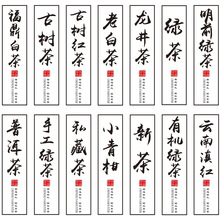 福鼎白茶
古树茶
古树红茶
老白茶
龙井茶
绿茶
明前绿茶
普洱茶
手工绿茶
私藏茶
小青柑
新茶
有机绿茶
云南滇红